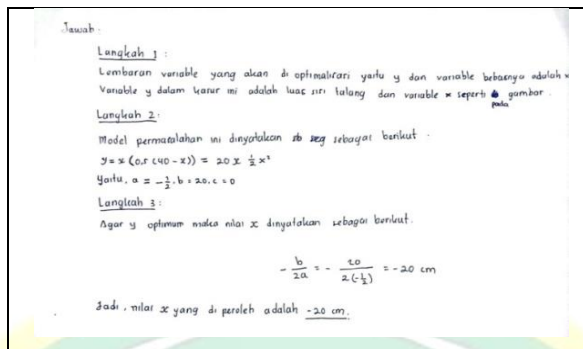 Jawab :
Langkah 1 :
Lembaran variable yang akan di optimalisasi yaitu y dan variable bebasnya adalah x
Variable y dalam kasus ini adalah luas sisi talang dan variable x seperti pada gambar .
Langkah 2 :
Model permasalahan ini dinyatakan sb seg sebagai berikut .
y = x (0,5 (40 - x)) = 20 x ½ x²
Yaitu, a = -½ . b = 20, c = 0
Langkah 3 :
Agar y optimum maka nilai x dinyatakan sebagai berikut .
- b/2a = - 20/2(-½) = -20 cm
Jadi , nilai x yang di peroleh adalah -20 cm.